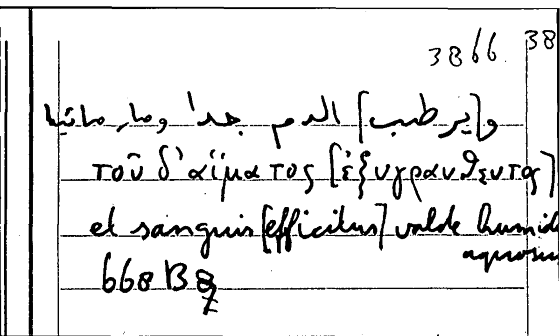 3866 38
و[يرطب] الدم جدا وصار مائيا
τοῦ δ' αἵματος [ἐξυγρανθεντος]
et sanguis [efficitur] valde humid
aquosu
668 B 8
7